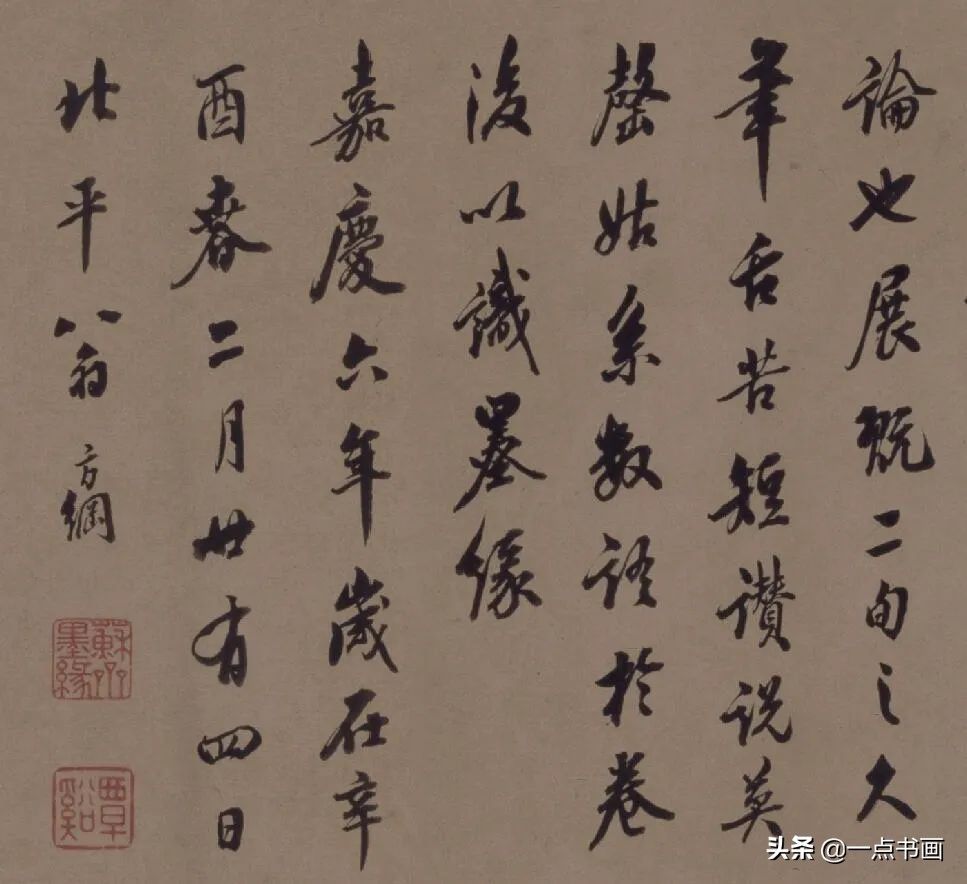 論也展翫二旬之久
筆舌苦短讚說莫
罄姑系數語於卷
後以識墨緣
嘉慶六年歲在辛
酉春二月廿有四日
北平翁方綱
墨緣
覃谿
头条 @一点书画